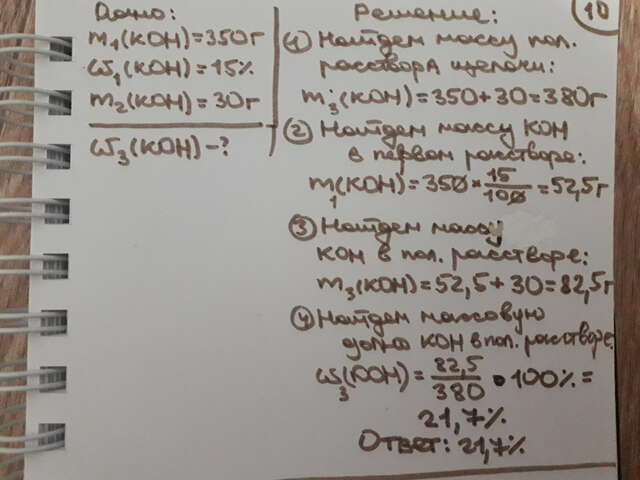 10
Дано:
m₁(KOH)=350г
ω₁(KOH)=15%
m₂(KOH)=30г
ω₃(KOH)-?
Решение:
① Найдем массу пол.
раствора щелочи:
m₃(KOH)=350+30=380г
② Найдем массу KOH
в первом растворе:
m₁(KOH)=350*15/100=52,5г
③ Найдем массу
KOH в пол. растворе:
m₃(KOH)=52,5+30=82,5г
④ Найдем массовую
долю KOH в пол. растворе
ω₃(KOH)=82,5/380•100%=
21,7%
Ответ: 21,7%